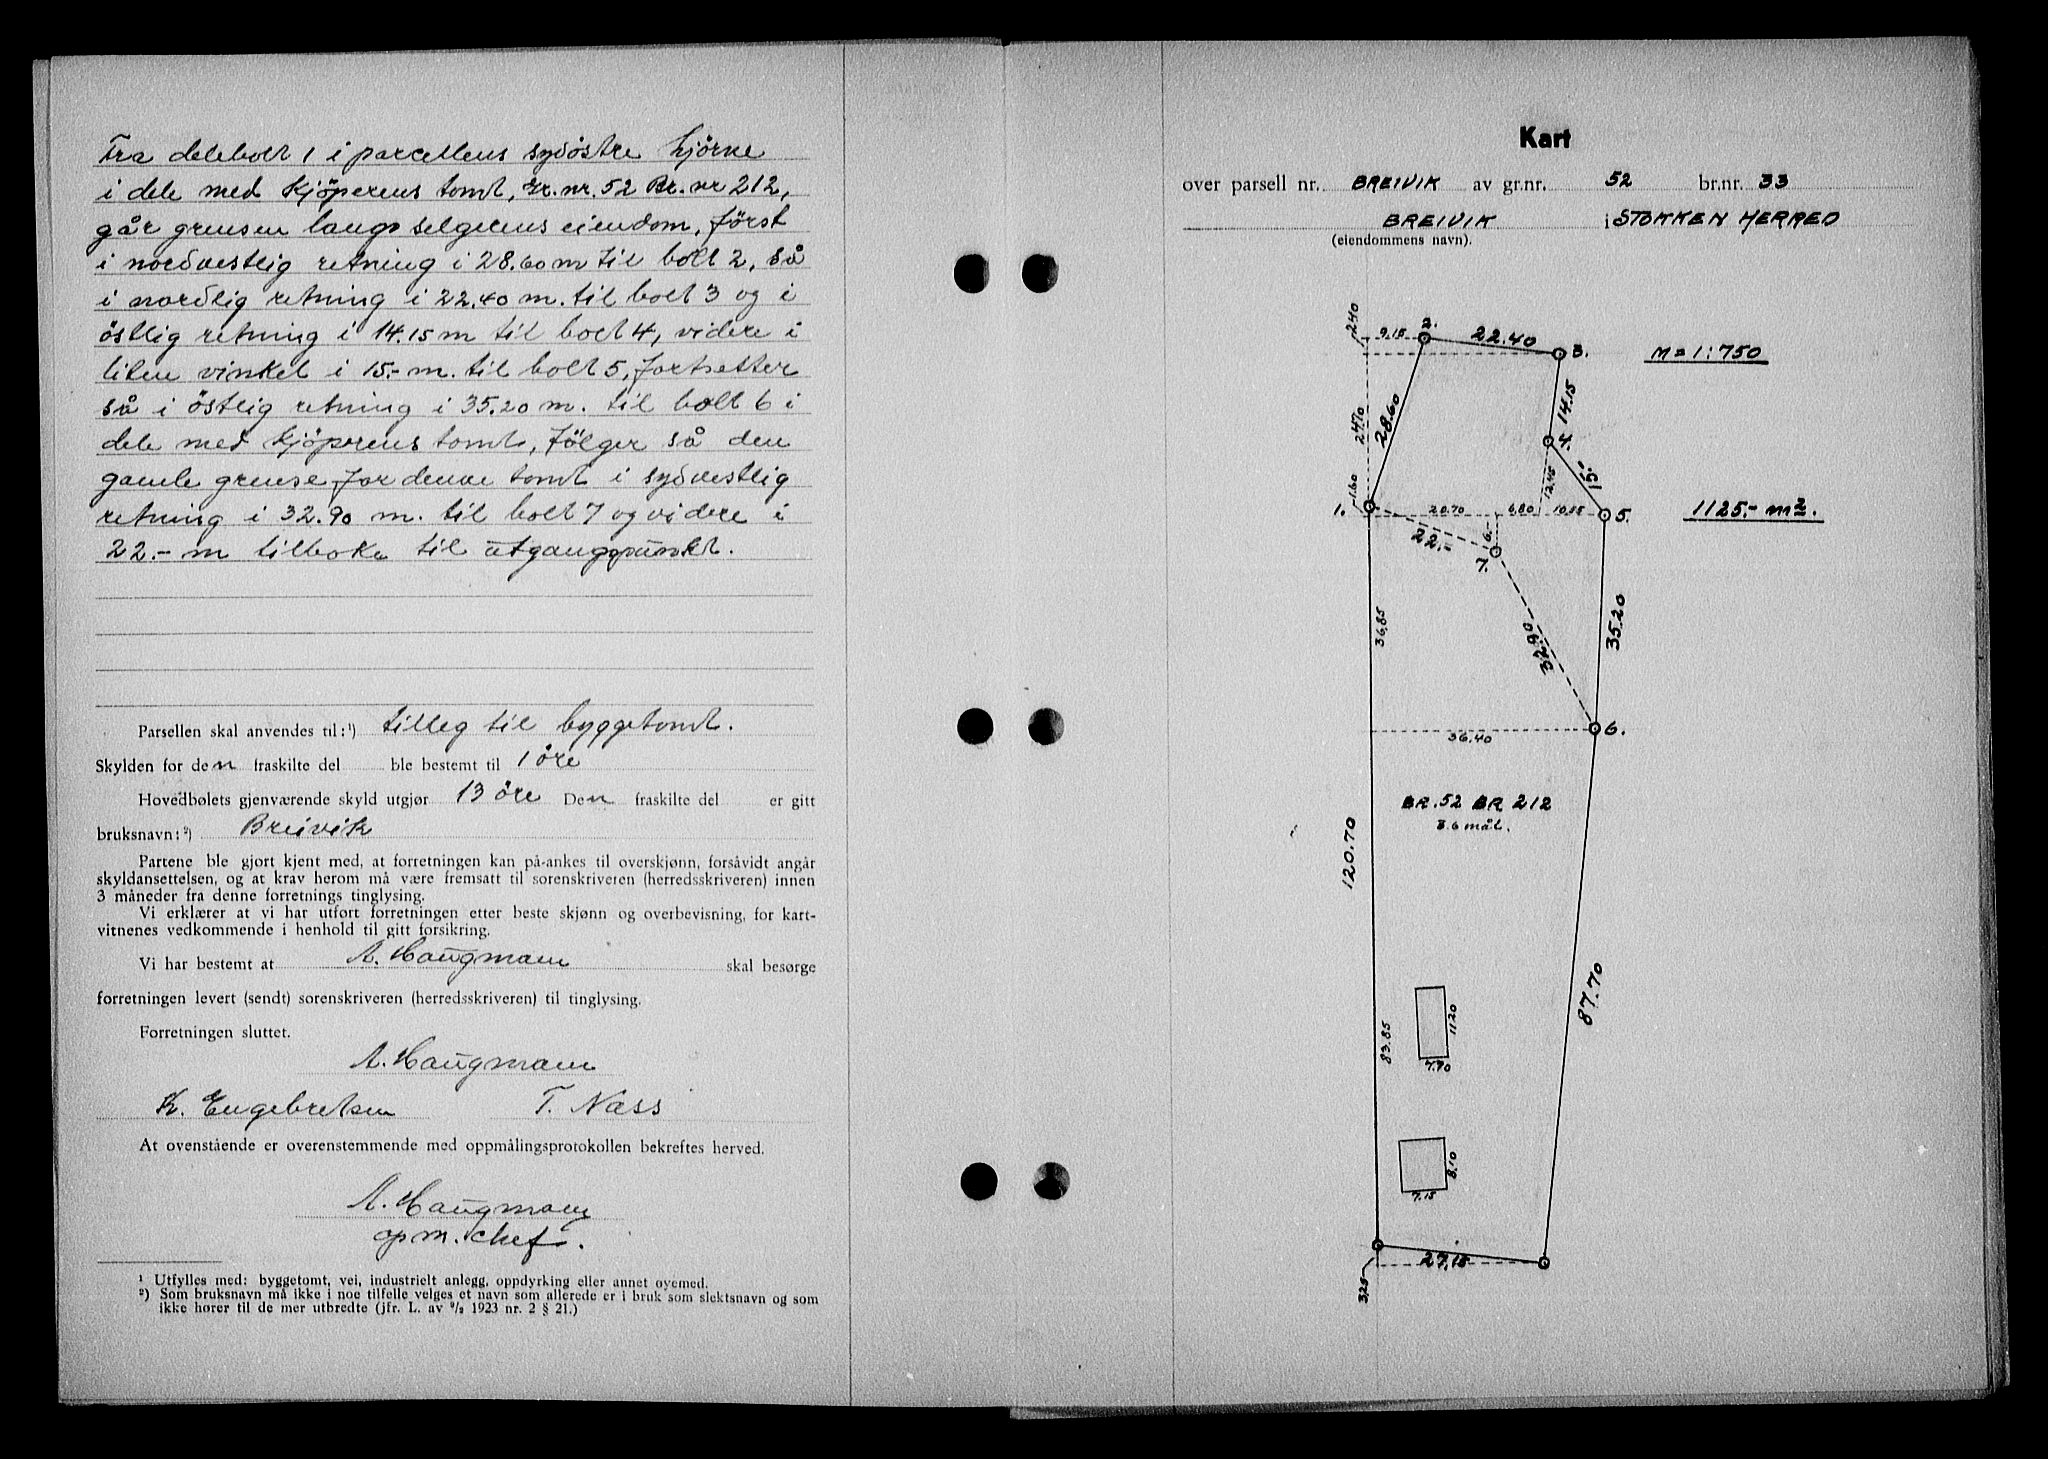 Fra delebolt 1 i parcellens sydöstre hjörne
i dele med kjöperens tomt, Gr.nr. 52 Br.nr 212,
går grensen langs selgerens eiendom, först
i nordvestlig retning i 28.60 m til bolt 2, så
i nordlig retning i 22.40 m. til bolt 3 og i
östlig retning i 14.15 m til bolt 4, videre i
liten vinkel i 15.- m. til bolt 5, fortsetter
så i östlig retning i 35.20 m. til bolt 6 i
dele med kjöperens tomt, fölger så den
gamle grense for denne tomt i sydvestlig
retning i 32.90 m. til bolt 7 og videre i
22.- m tilbake til utgangspunkt.
Parsellen skal anvendes til:¹) tilleg til byggetomt.
Skylden for den fraskilte del ble bestemt til 1 öre
Hovedbølets gjenværende skyld utgjør 13 öre Den fraskilte del er gitt
bruksnavn:²) Breivik
Partene ble gjort kjent med, at forretningen kan på-ankes til overskjønn, forsåvidt angår
skyldansettelsen, og at krav herom må være fremsatt til sorenskriveren (herredsskriveren) innen
3 måneder fra denne forretnings tinglysing.
Vi erklærer at vi har utført forretningen etter beste skjønn og overbevisning, for kart-
vitnenes vedkommende i henhold til gitt forsikring.
Vi har bestemt at A. Haugmann skal besørge
forretningen levert (sendt) sorenskriveren (herredsskriveren) til tinglysing.
Forretningen sluttet.
A. Haugmann
K. Engebretsen T. Næss
At ovenstående er overenstemmende med oppmålingsprotokollen bekreftes herved.
A. Haugmann
opm. chef.
¹ Utfylles med: byggetomt, vei, industrielt anlegg, oppdyrking eller annet øyemed.
²) Som bruksnavn må ikke i noe tilfelle velges et navn som allerede er i bruk som slektsnavn og som
ikke hører til de mer utbredte (jfr. L. av ⁹/₂ 1923 nr. 2 § 21.)
Kart
over parsell nr. BREIVIK av gr.nr. 52 br.nr. 33
BREIVIK i STOKKEN HERRED
(eiendommens navn).
2.40
9.15 2. 22.40 3.
M = 1:750
24.70 28.60 14.15
4.
1.60 12.45 15.-
1. 20.70 6.80 10.15 5.
1125.- m2.
22.- 6.- 7.
36.85 32.90 35.20
36.40 6.
GR. 52 BR 212
3.6 mål.
120.70
87.70
83.85
11.20
7.70
8.10
7.15
27.15
3.25